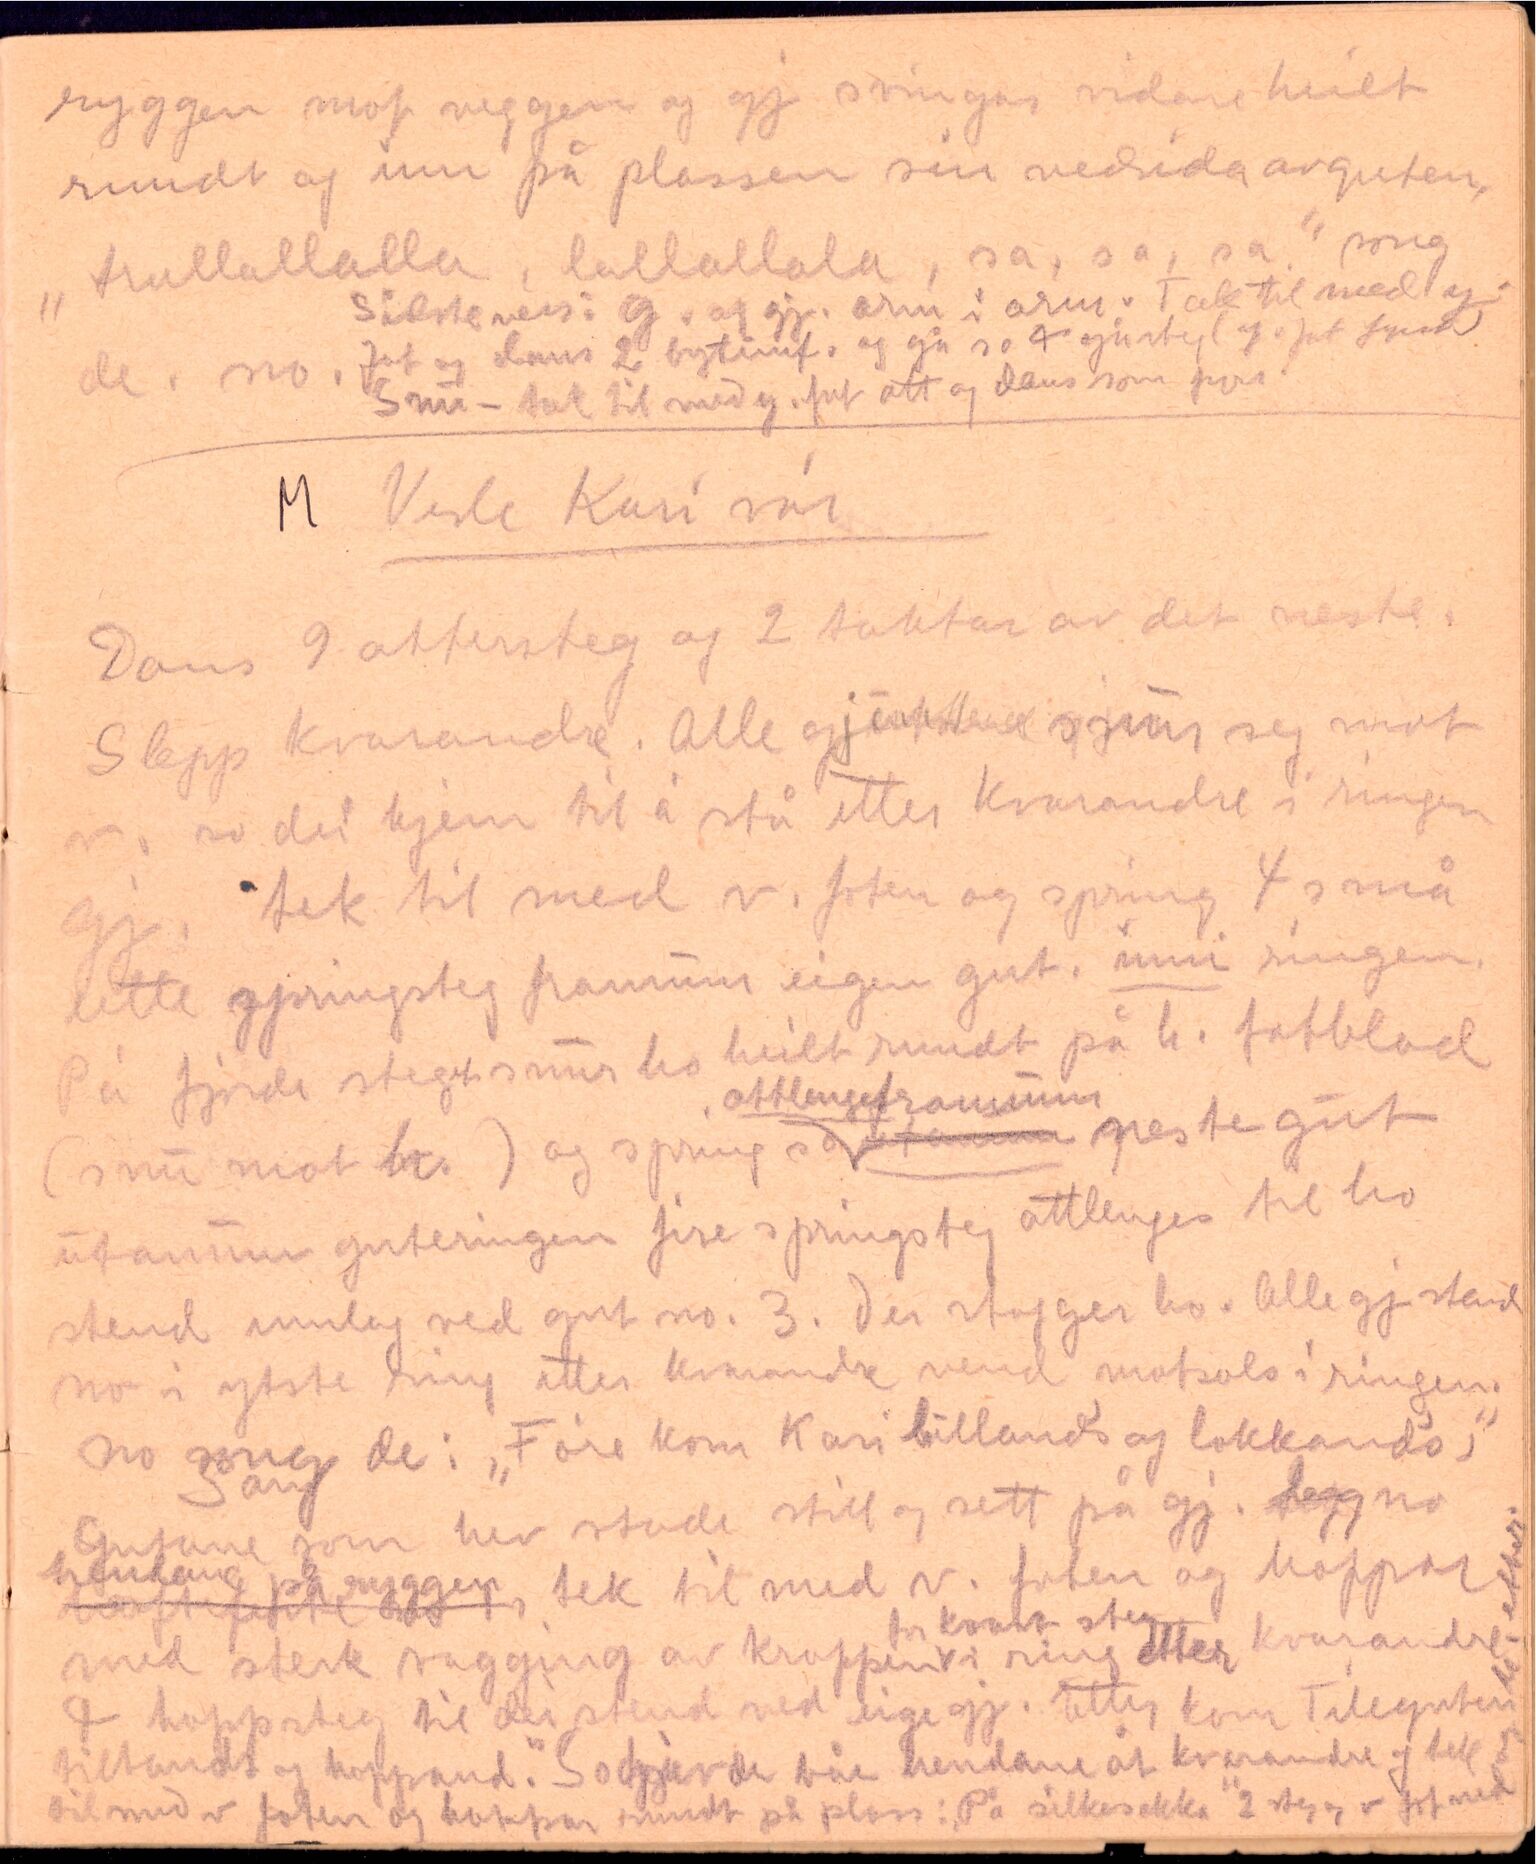 ryggen mot veggen og gj svingar vidare heilt
rundt og inn på plassen sin vedsida avguten,
"trallallalla, lallallala, sa, sa, sa" song
Siste vers: g. og gj. arm i arm. Tak til med y.
de. no. fot og dans 2 bytomf. og gå so 4 gårsteg (y. fot fyrst)
Snu - tak til med y. fot att og dans som fyrr
M Vesle Kari vår
Dans 9 attersteg og 2 taktar av det neste.
Slepp kvarandre. Alle gjentene snur seg mot
v. so dei kjem til å stå etter kvarandre i ringen
gj. tek til med v. foten og spring 4 små
lette springsteg framum eigen gut. inni ringen.
På fjorde steget snur ho heilt rundt på h. fotblad
attlenges framum
(snu mot h.) og spring so utanum neste gut
utanum guteringen fire springsteg attlenges til ho
stend innlag ved gut no. 3. Der stogger ho. Alle gj stend
no i ytste ring etter kvarandre vend motsols i ringen.
no song de: "Føre kom Kari lillands og lokkands,"
Song
Gutane som hev stade still og sett på gj. legg no
hendane på ryggen
tek til med v. foten og hoppar
for kvart steg
med sterk vagging av kroppen i ring etter kvarandre
4 hoppsteg til dei stend ved eige gj. "Etter kom Tileguten
tillands og hoppand." So gjev de båe hendane åt kvarandre og tek
til med v foten og hoppar rundt på plass: "På silkesokka" 2 steg v fot med